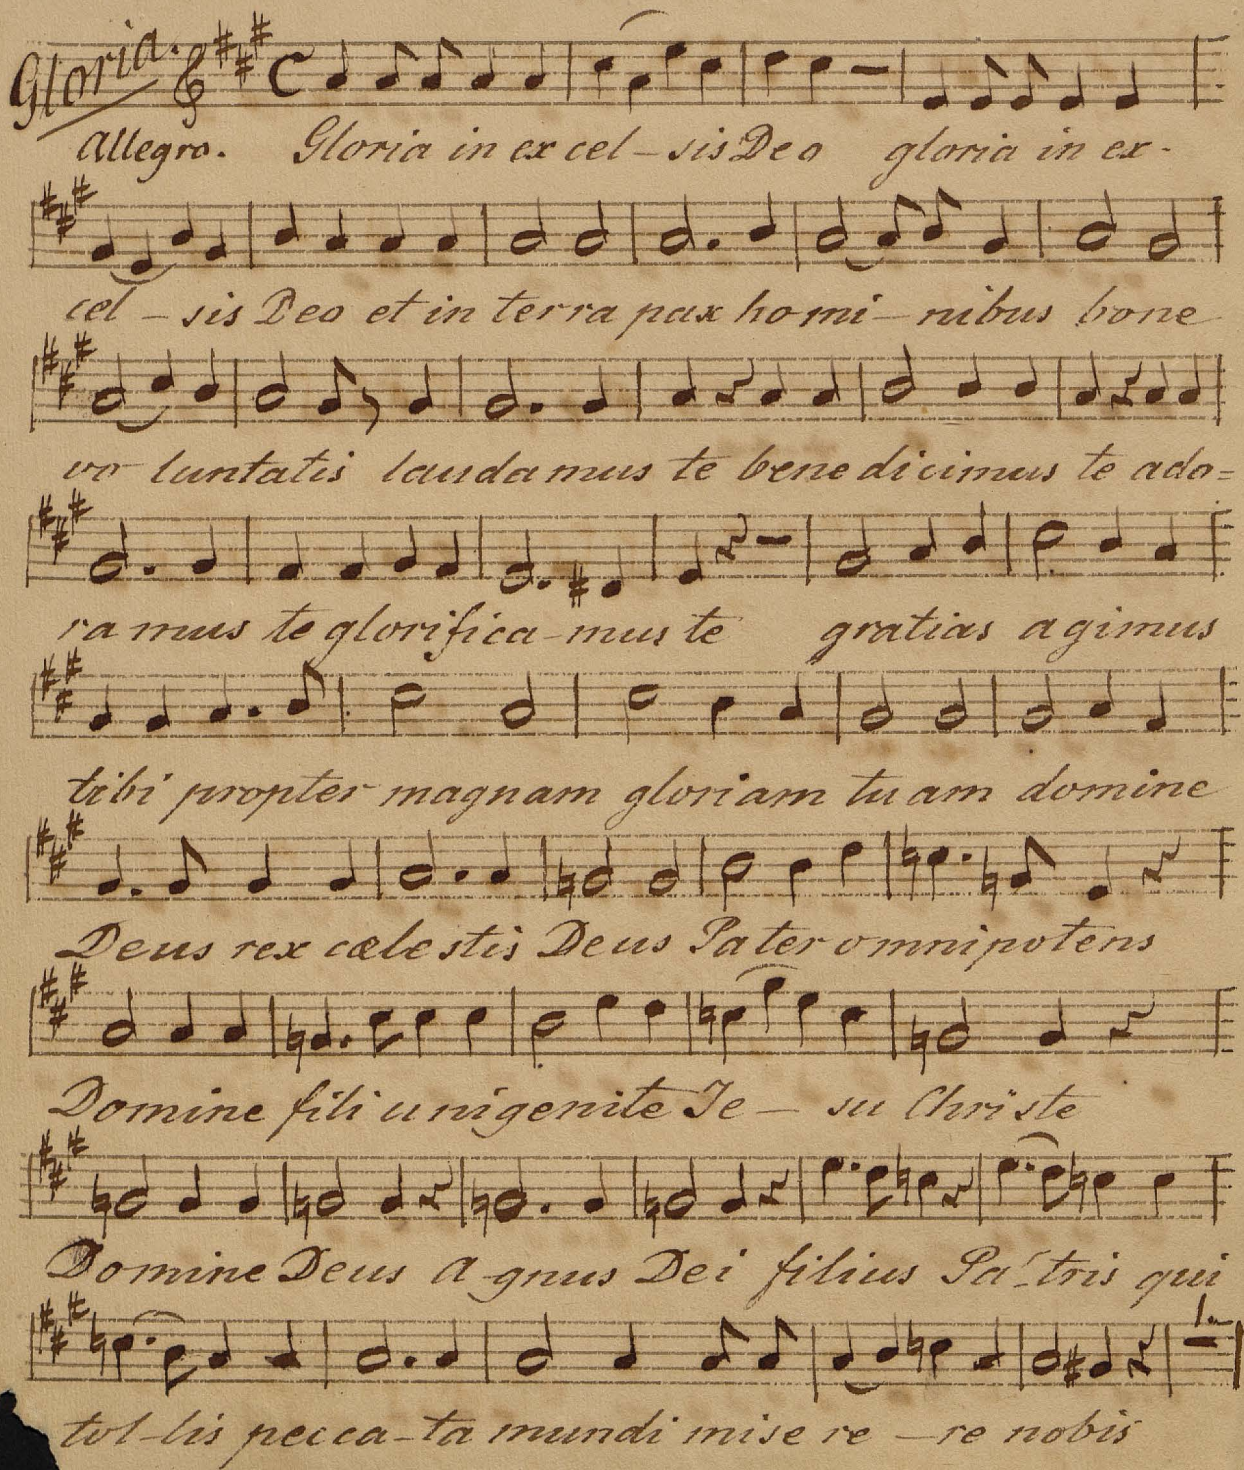 Gloria.
Allegro. Gloria in ex cel – sis Deo gloria in ex-
cel – sis Deo et in terra pax homi – nibus bone
vo luntatis laudamus te benedicimus te ado=
ramus te glorifica-mus te gratias agimus
tibi propter magnam gloriam tuam domine
Deus rex cælestis Deus Pater omnipotens
Domine fili unigenite Je – su Christe
Domine Deus A-gnus Dei filius Pa-tris qui
tol-lis pecca-ta mundi misere – re nobis